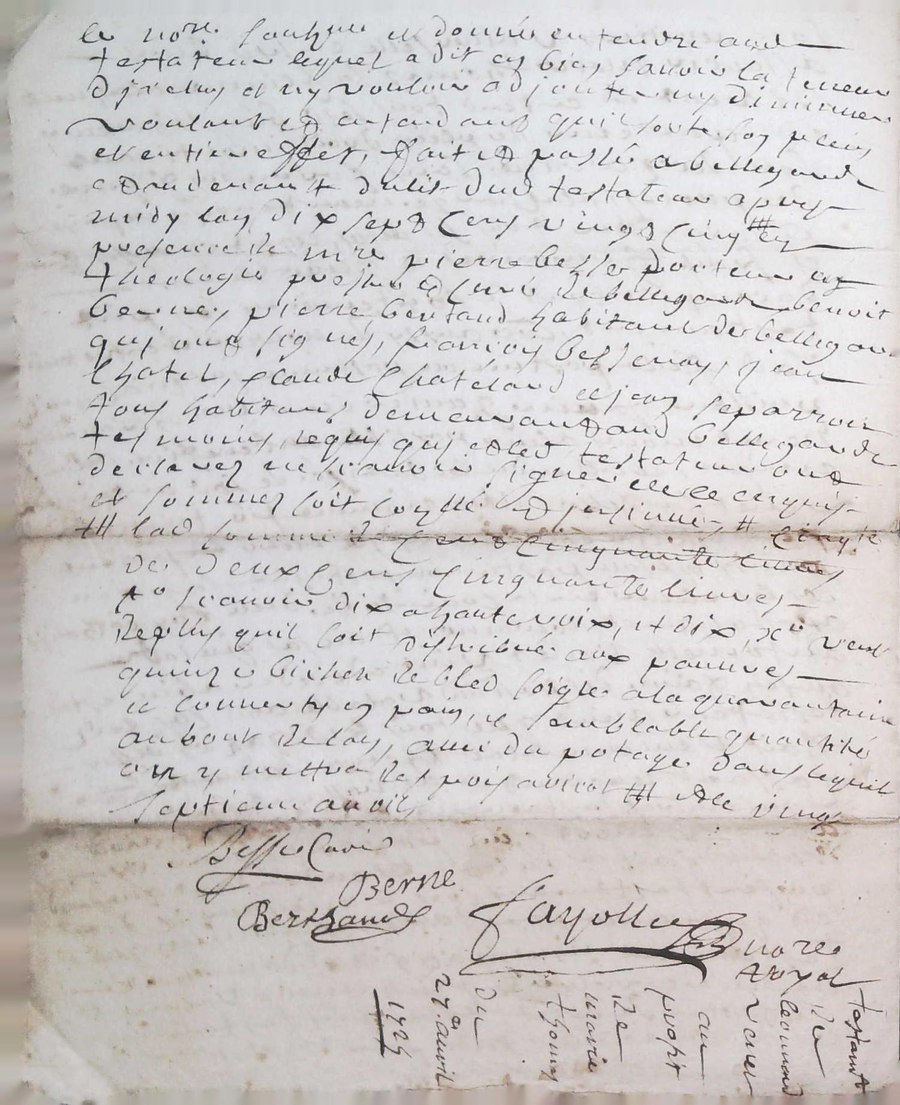 le nore soubzne et donné entendre aud
testateur lequel a dit es bien sçavoir la teneur
Djcelluy et ny vouloir adjouter ny diminuer
voulant et entendant quil sorte son plein
et entier effet, fait et passé a bellegarde
au devant du lit dud testateur apres
midy lan dix sept cens vingt cinq # en
presence de mre pierre besse docteur en
theologie prestre et curé de bellegarde benoit
berne, pierre bertaud habitant de bellegarde
qui ont signés, francois bessenay, jean
Chatel, claude Chateland et jean
tous habitans demeurant aud bellegarde
temoins requis qui et led testateur ont
declarez ne scavoir signer de ce enquis
et sommez soit et jnsinué #
# lad somme de cent cinquante livres
de deux cens cinquante livres
scavoir dix a haute voix, et dix, veut
de plus quil soit distribué aux pauvres
quinze bichet de bled soigle a la quarantaine
et converty en pain, et semblable quantité
au bout de lan, avec du potage dans lequel
on y mettra des pois # et le vingt
septieme avril
Besse Curé
Berne
Berthaud
Fayolle nore
royal
testamt
de
leonard
au
profit
de
marie
thomas
du
27e avril
1725